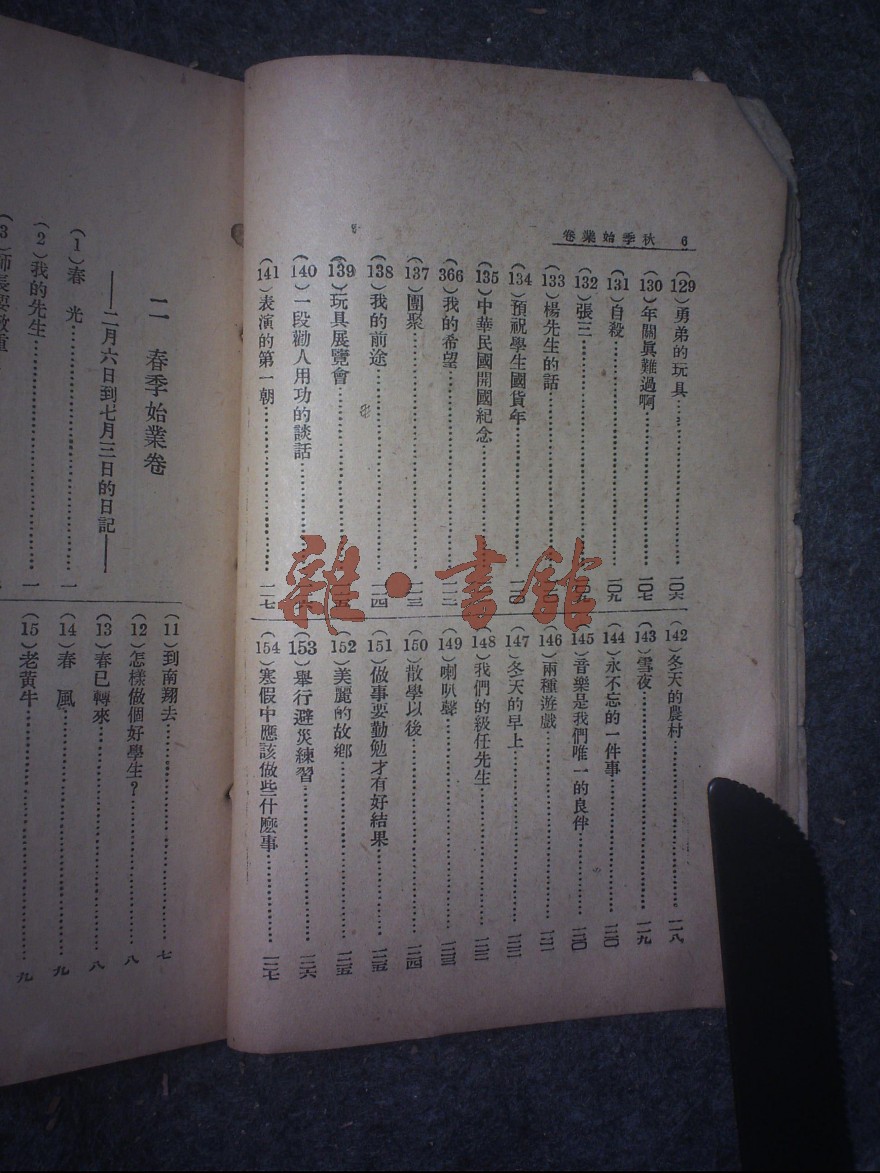 6 秋季始業卷
(129)勇弟的玩具…………一〇六
(130)年關眞難過啊…………一〇七
(131)自殺…………一〇九
(132)張三…………一〇九
(133)楊先生的話…………
(134)預祝學生國貨年…………
(135)中華民國開國紀念…………
(366)我的希望…………一一二
(137)團聚…………一一三
(138)我的前途…………一一四
(139)玩具展覽會…………
(140)一段勸人用功的談話…………
(141)表演的第一朝…………一一七
(142)冬天的農村…………一一八
(143)雪夜…………一一九
(144)永不忘的一件事…………一二〇
(145)音樂是我們唯一的良伴…………一二〇
(146)兩種遊戲…………一二一
(147)冬天的早上…………一二二
(148)我們的級任先生…………一二二
(149)喇叭聲…………一二三
(150)散學以後…………一二四
(151)做事要勤勉才有好結果…………一二五
(152)美麗的故鄉…………一二五
(153)舉行避災練習…………一二六
(154)寒假中應該做些什麽事…………一二七
二 春季始業卷
——二月六日到七月三日的日記——
(1)春 光…………一
(2)我的先生…………一
(3)師長要敬重
(11)到南翔去…………七
(12)怎樣做個好學生？…………八
(13)春已轉來…………八
(14)春 風…………九
(15)老黃牛…………九
雜·書館